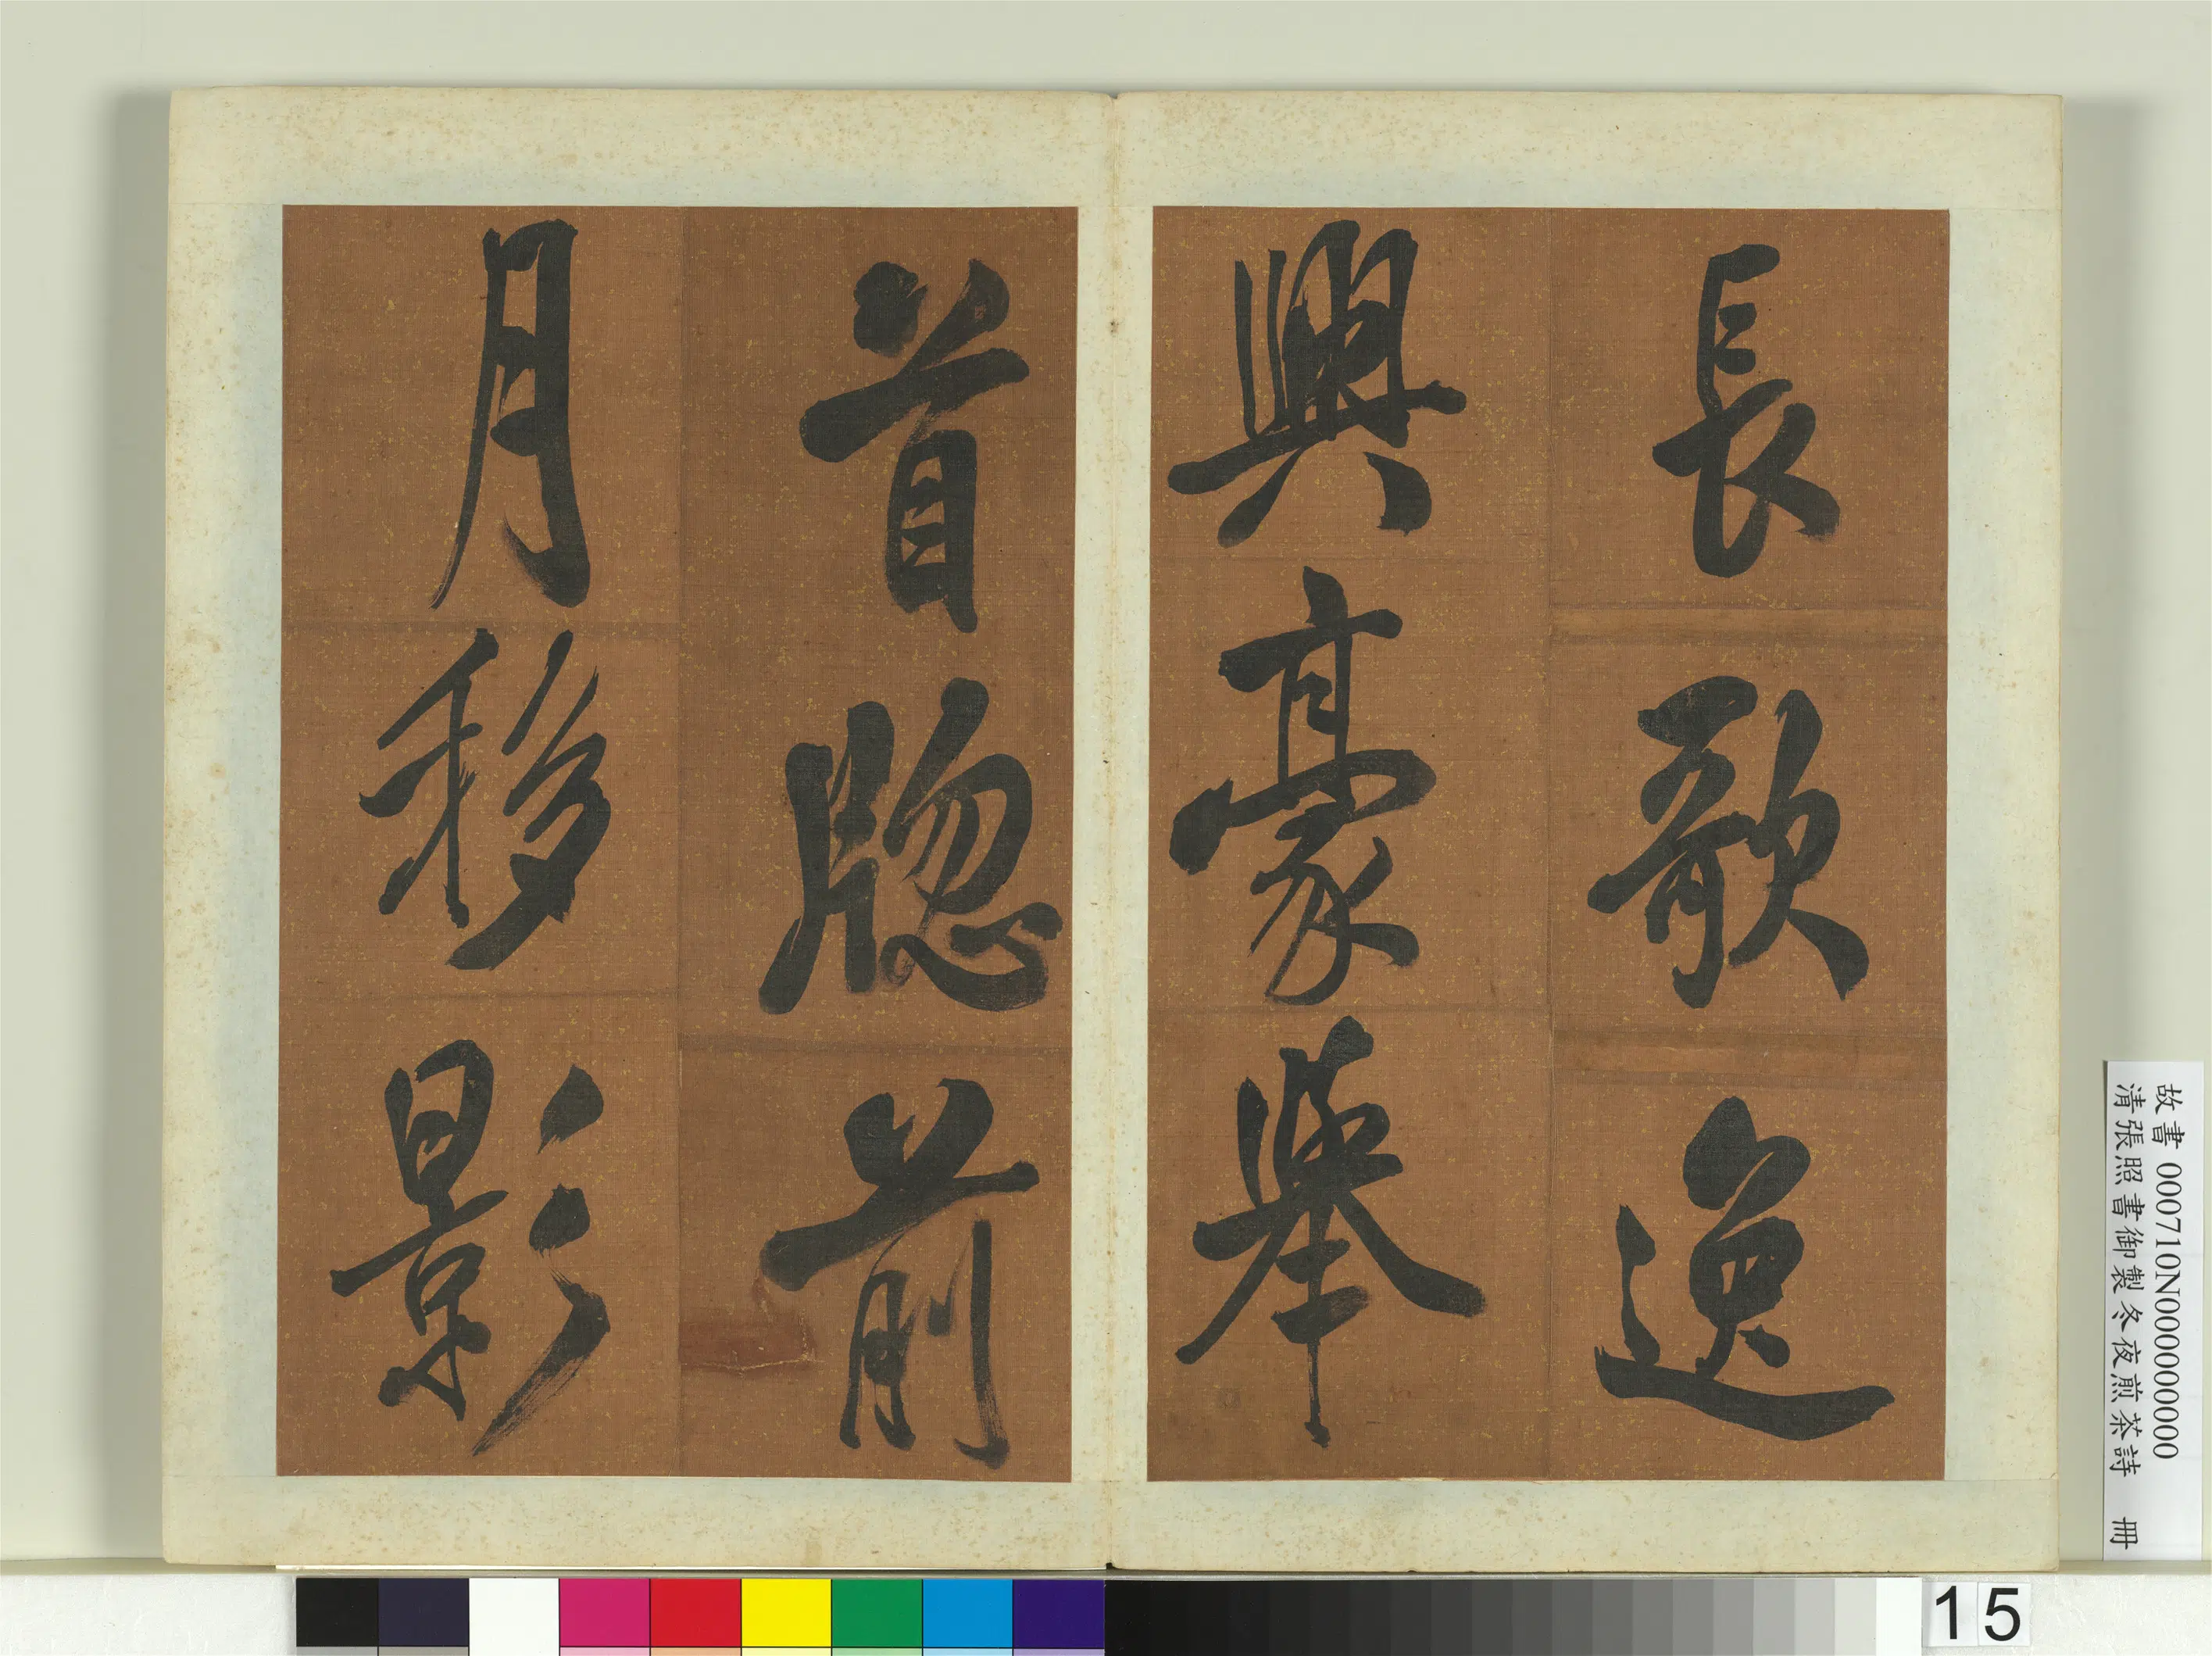 長歌逸
興豪舉
首牎前
月移影
故書 000710N000000000
清張照書御製冬夜煎茶詩 冊
15